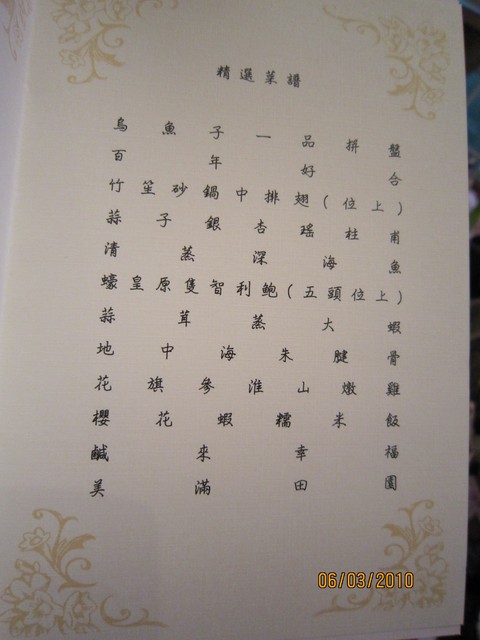 精選菜譜
烏魚子一品拼盤
百年好合
竹笙砂鍋中排翅(位上)
蒜子銀杏瑤柱甫
清蒸深海魚
蠔皇原隻智利鮑(五頭位上)
蒜茸蒸大蝦
地中海朱腱骨
花旗參淮山燉雞
櫻花蝦糯米飯
鹹來幸福
美滿田圓
06/03/2010